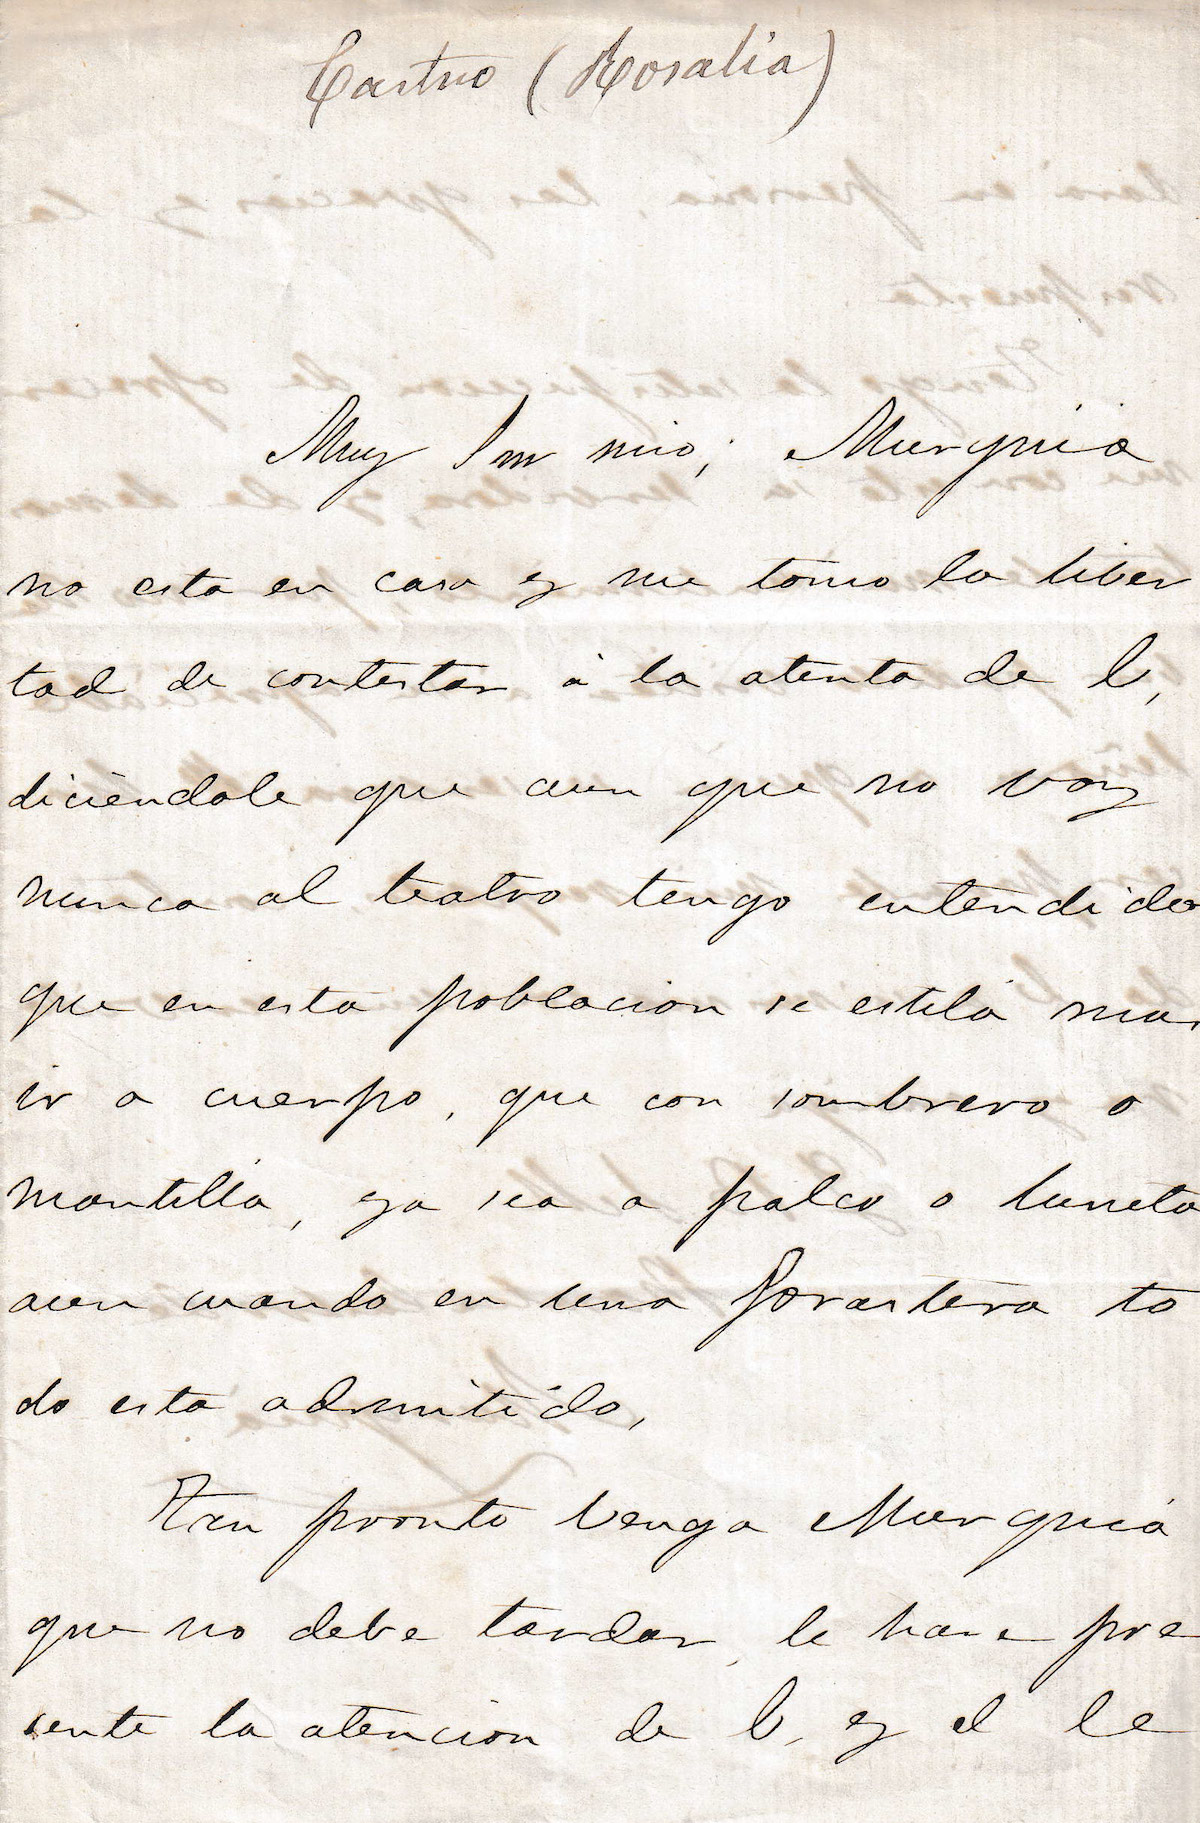 Castro (Rosalia)
Muy Sr mio; Murguia
no esta en casa y me tomo la liber
tad de contestar á la atenta de V,
diciéndole que aun que no voy
nunca al teatro tengo entendido
que en esta poblacion se estila mas
ir a cuerpo, que con sombrero o
mantilla, ya sea a palco o luneta
aun cuando en una forastera to
do esta admitido,
Tan pronto venga Murguia
que no debe tardar, le haré pre
sente la atencion de V, y el le